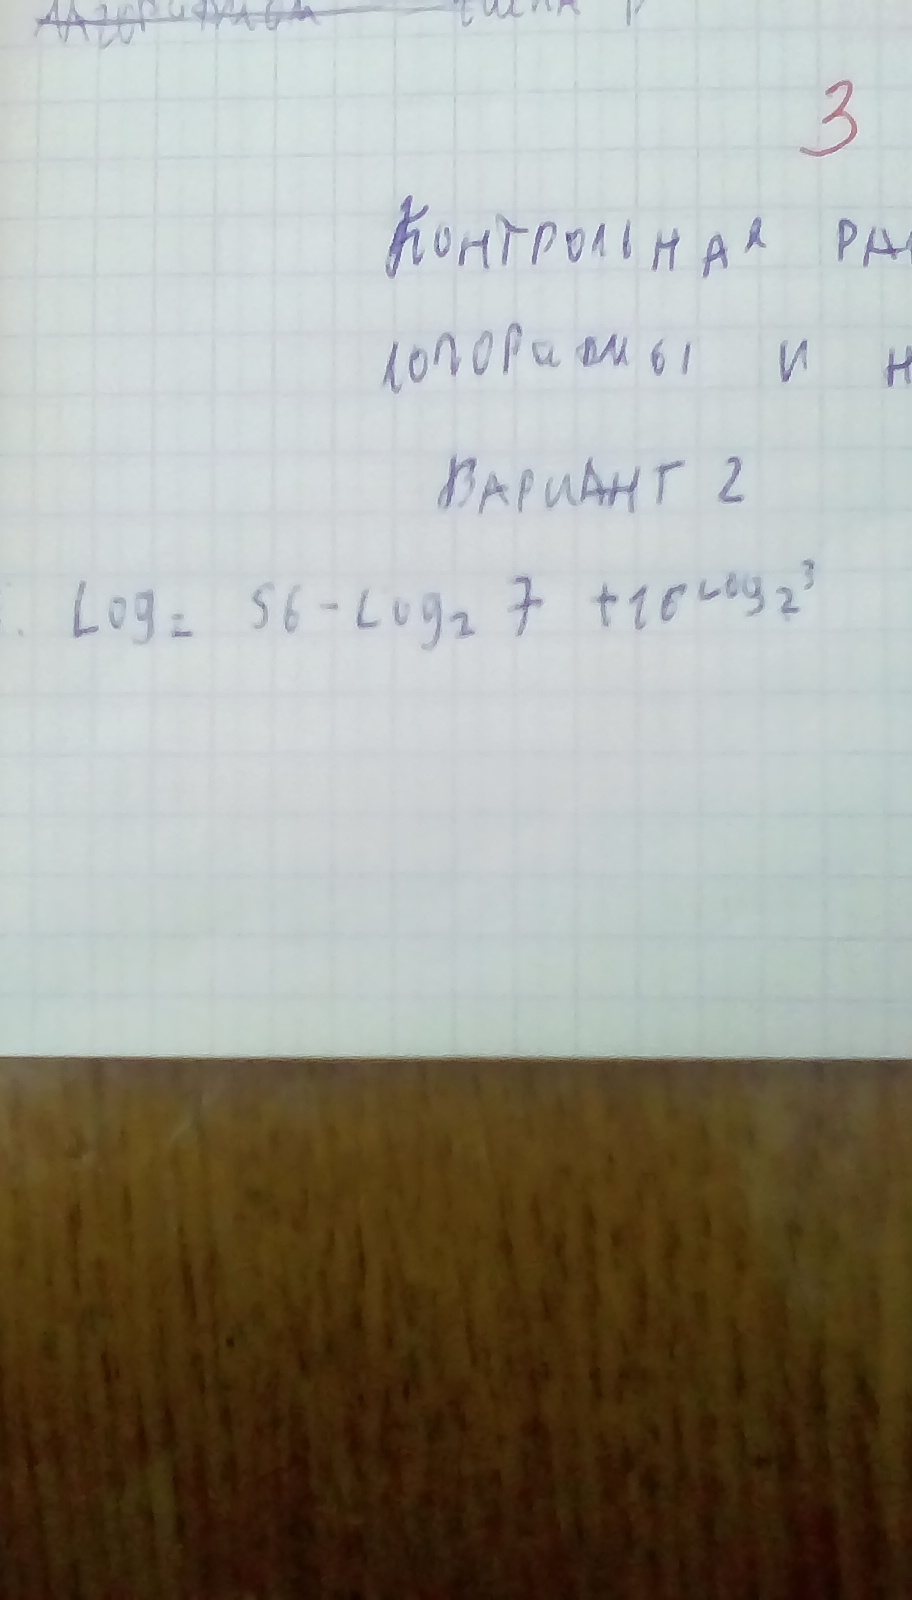 3
Контрольная
логорифмы и н
Вариант 2
Log₂ 56 - Log₂ 7 + 16^Log₂3